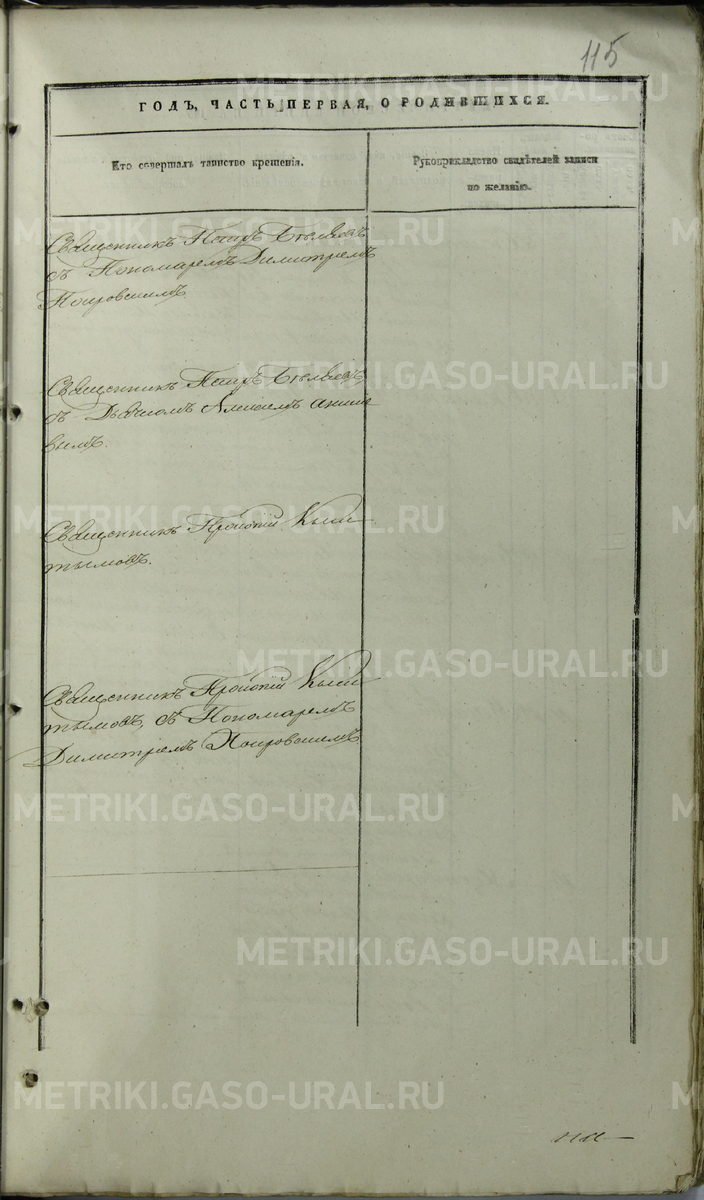 115
ГОДЪ, ЧАСТЬ ПЕРВАЯ, О РОДИВШИХСЯ.
Кто совершалъ таинство крещенія.
Рукоприкладство свидѣтелей записи
по желанію.
Священникъ Петръ
съ Пономаремъ Димитріемъ
Покровскимъ
Священникъ Петръ
съ Дьячкомъ Алексіемъ
вымъ.
Священникъ Прокопій Кыш
тымовъ.
Священникъ Прокопій Кыш
тымовъ, съ Пономаремъ
Димитріемъ Покровскимъ
METRIKI.GASO-URAL.RU